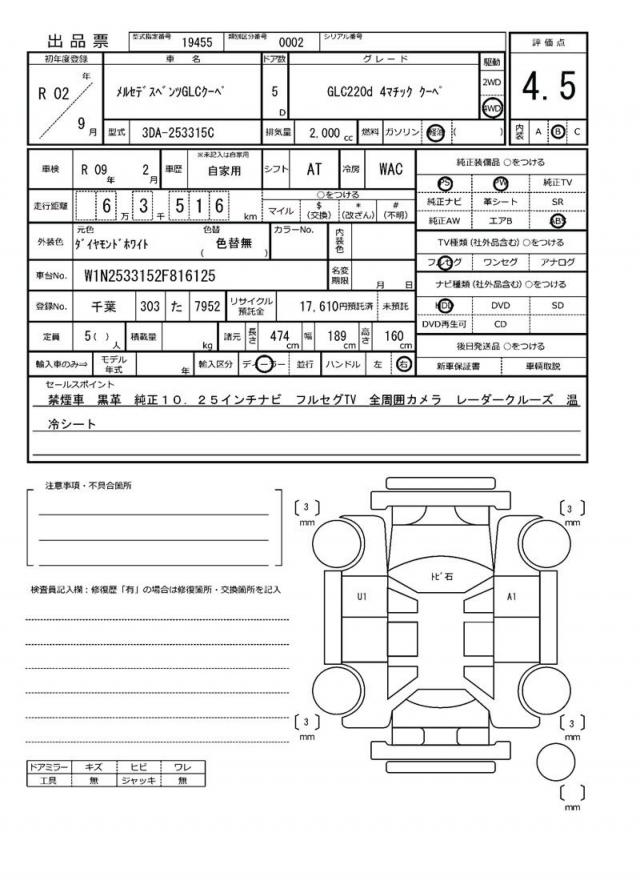 出品票 型式指定番号 19455 類別区分番号 0002 シリアル番号
初年度登録 車 名 ドア数 グレード 駆動 評価点
R 02 年 9 月 メルセデスベンツGLCクーペ 5 D GLC220d 4マチック クーペ 2WD 4WD 4.5
型式 3DA-253315C 排気量 2,000 cc 燃料 ガソリン 軽油 ( ) 内装 A B C
車検 R 09 年 2 月 車歴 ※未記入は自家用 自家用 シフト AT 冷房 WAC 純正装備品 ○をつける
PS PW 純正TV
走行距離 6 万 3 千 5 1 6 km ○をつける
マイル $ (交換) * (改ざん) # (不明)
純正ナビ 革シート SR
純正AW エアB ABS
外装色 元色 ダイヤモンドホワイト 色替 ( 色替無 ) カラーNo. 内装色
TV種類 (社外品含む) ○をつける
フルセグ ワンセグ アナログ
車台No. W1N2533152F816125 名変期限 月 日
ナビ種類 (社外品含む) ○をつける
登録No. 千葉 303 た 7952 リサイクル預託金 17,610円預託済 未預託
HDD DVD SD
DVD再生可 CD
定員 5( ) 人 積載量 kg 諸元 長さ 474 cm 幅 189 cm 高さ 160 cm
後日発送品 ○をつける
輸入車のみ⇒ モデル年式 年 輸入区分 ディーラー 並行 ハンドル 左 右
新車保証書 車輌取説
セールスポイント
禁煙車 黒革 純正10．25インチナビ フルセグTV 全周囲カメラ レーダークルーズ 温
冷シート
注意事項・不具合箇所
〔 3 〕 mm
〔 3 〕 mm
トビ石
検査員記入欄：修復歴「有」の場合は修復箇所・交換箇所を記入
U1
A1
〔 3 〕 mm
〔 3 〕 mm
ドアミラー キズ ヒビ ワレ
工具 無 ジャッキ 無
〔 〕 mm